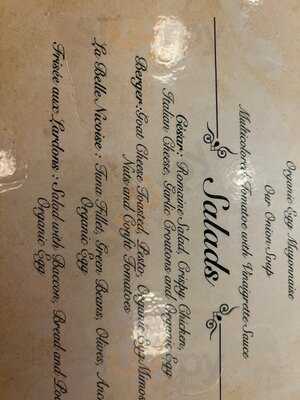 Organic Egg Mayonnaise
Our Onion Soup
Multicolored Tomatoe with Vinaigrette Sauce
Salads
César: Romaine Salad, Crispy Chicken,
Italian Cheese, Garlic Croutons and Organic Egg
Berger: Goat Cheese Toasted, Pesto, Organic Egg Mimosa
Nuts and Confit Tomatoes
La Belle Nicoise : Tuna Fillet, Green Beans, Olives,
Organic Egg
Frisée aux Lardons : Salad with Bacon, Bread and
Organic Egg